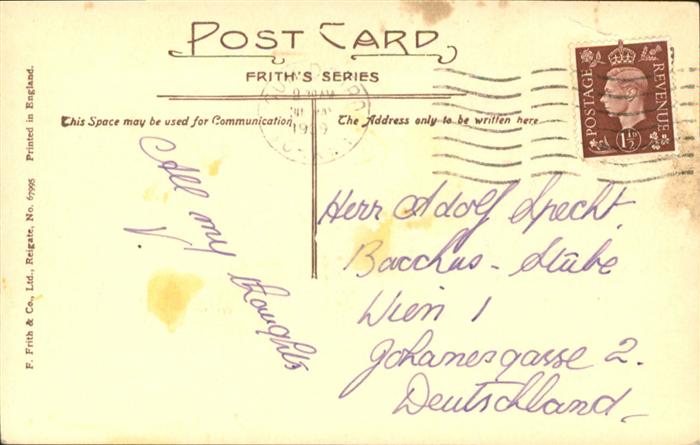 POST CARD
FRITH'S SERIES
This Space may be used for Communication
The Address only to be written here
All my thoughts
V.
Herr Adolf Specht.
Bacchus-Stübe
Wien 1
Johanesgasse 2.
Deutschland.
POSTAGE
REVENUE
1½D
1939
F. Frith & Co., Ltd., Reigate, No. 67995 Printed in England.